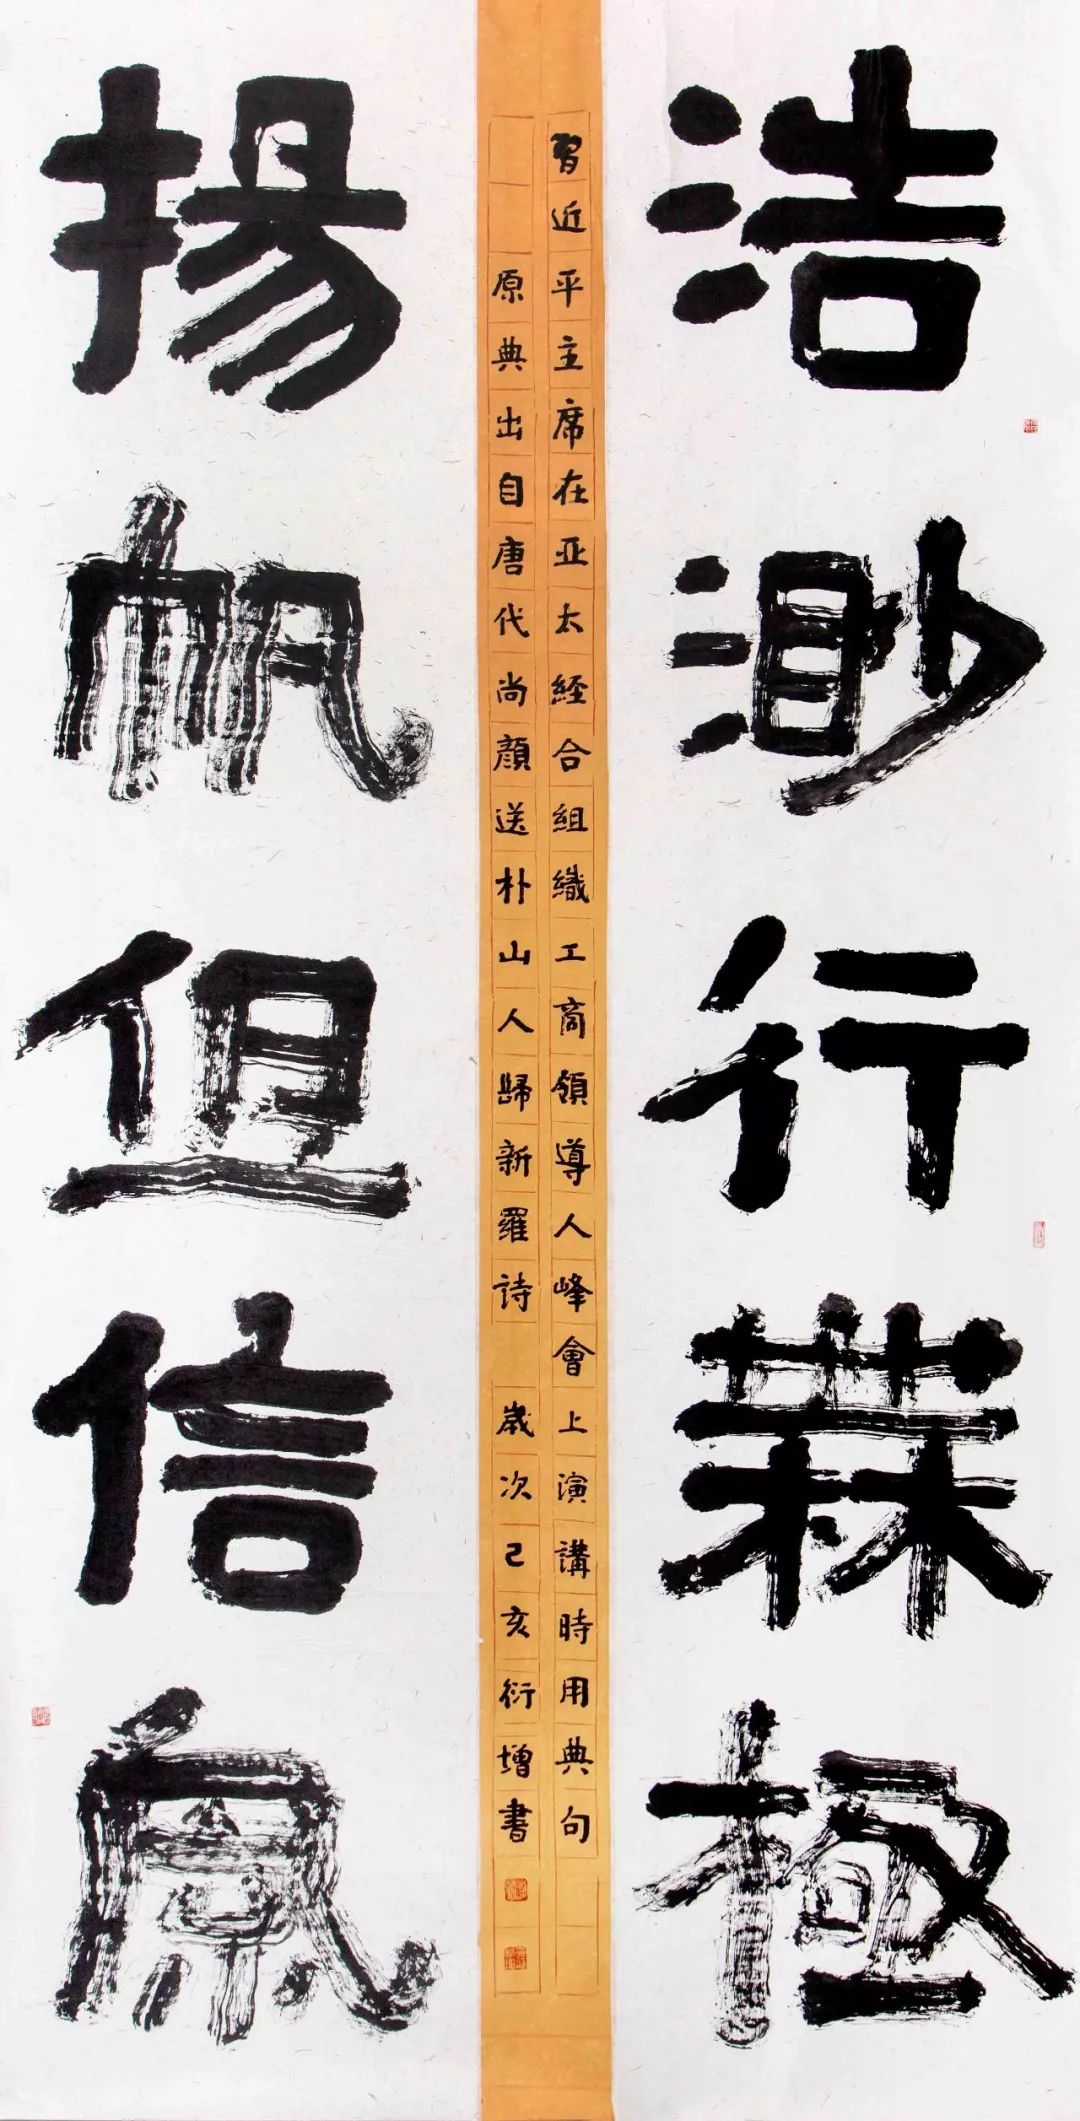 浩渺行無極
習近平主席在亚太經合組織工商領導人峰會上演講時用典句
原典出自唐代尚顏送朴山人歸新羅詩 歲次己亥衍增書
揚帆但信風